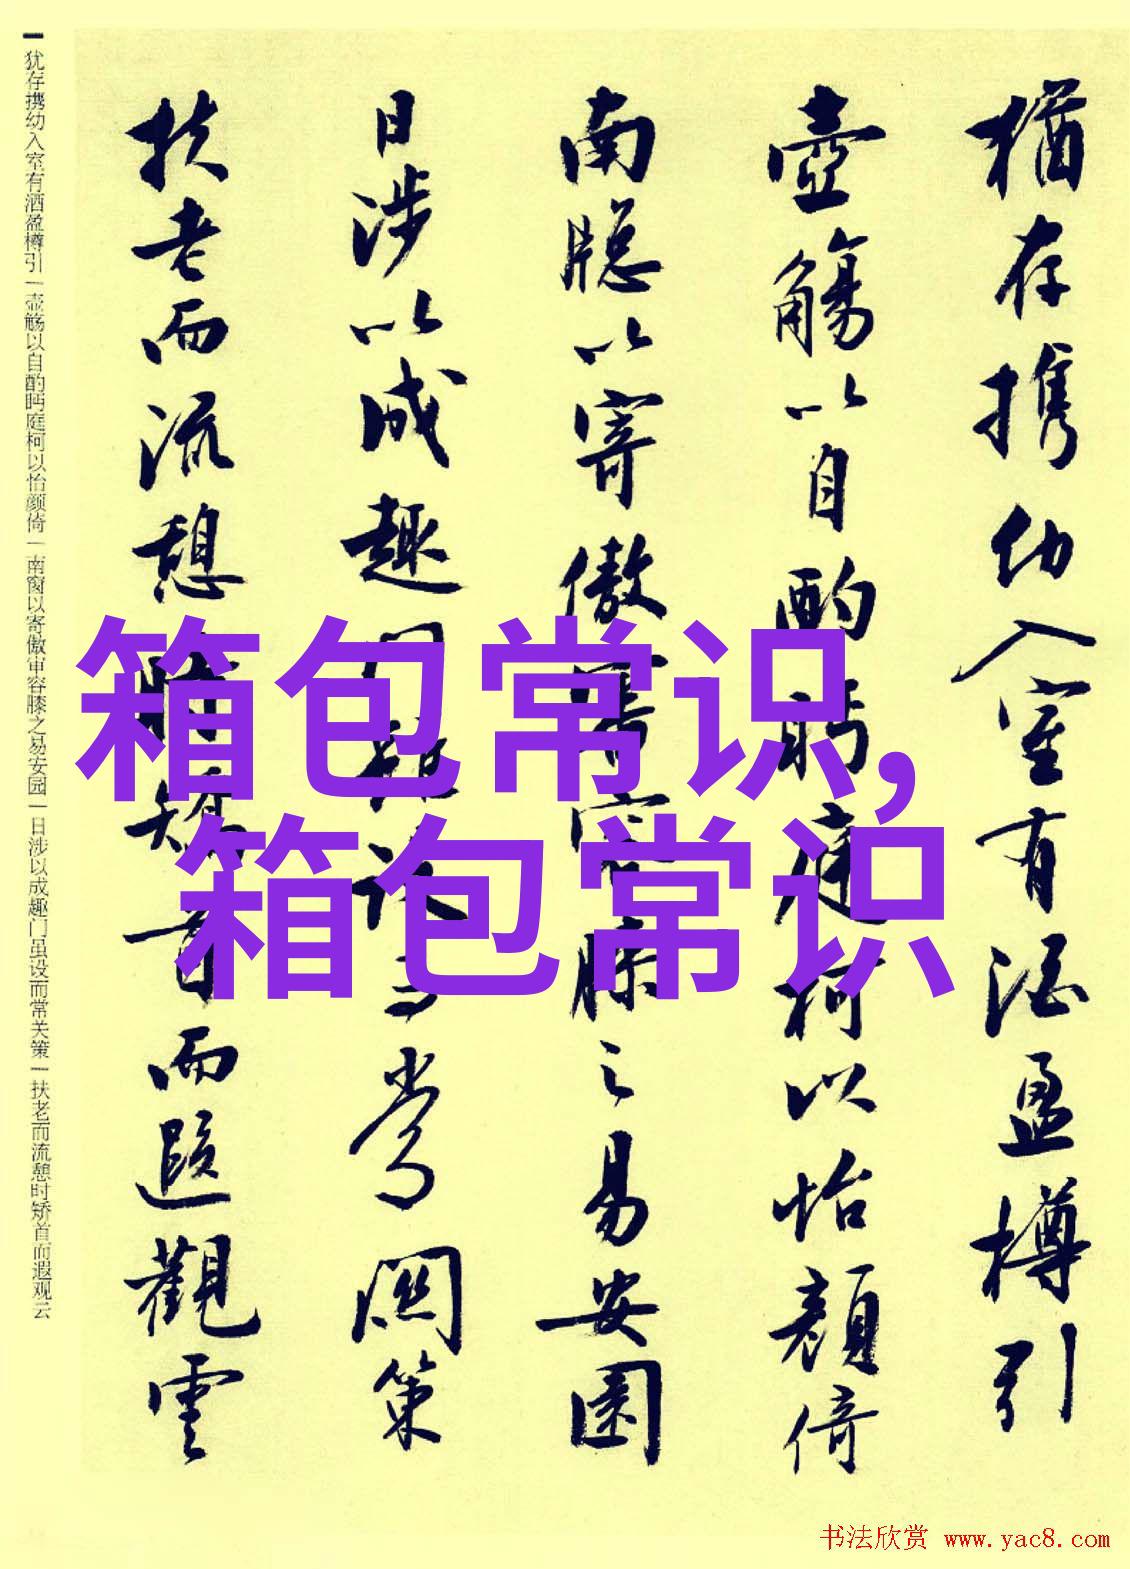 箱包常识,
箱包常识
猶存携幼入室有酒盈樽引
壺觴以自酌眄庭柯以怡顏倚
南牕以寄傲審容膝之易安園
日涉以成趣門雖設而常關策
扶老而流憩時矯首而遐觀雲
犹存携幼入室有洒盈樽引｜壶觞以自酌眄庭柯以怡颜倚｜南窗以寄傲审容膝之易安园｜日涉以成趣门虽设而常关策｜扶老而流憩时矫首而遐观云
书法欣赏 www.yac8.com